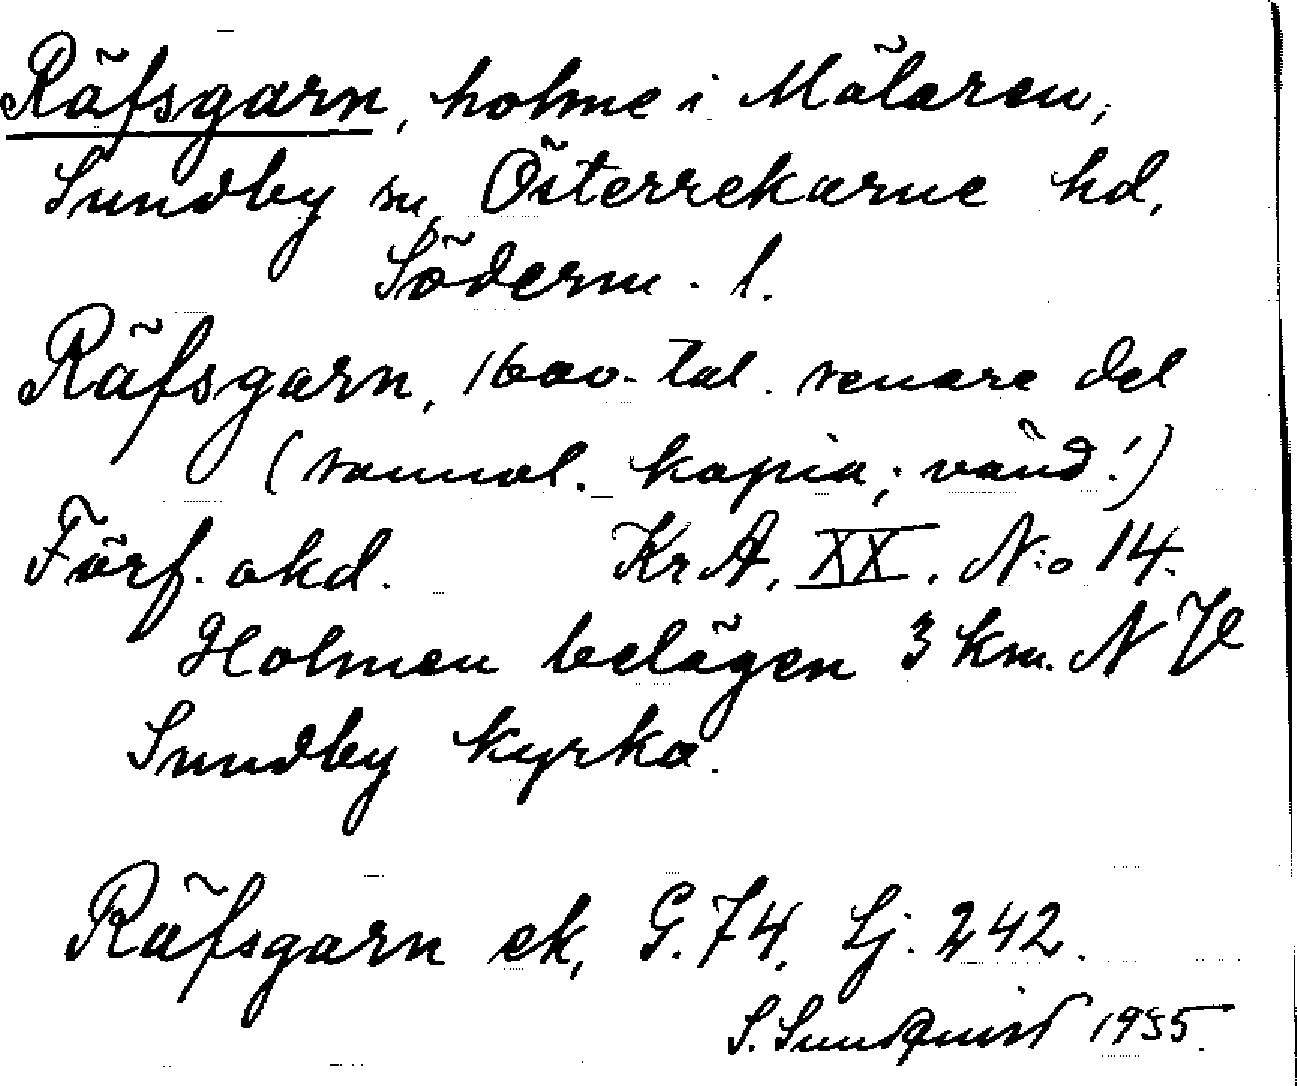 Räfsgarn, holme i Mälaren,
Sundby sn, Österrekarne hd,
Söderm. l.
Räfsgarn, 1600-tal. senare del
(sannol. kopia; vänd!)
Förf. okd. KrA, XX. N:o 14.
Holmen belägen 3 km. N
Sundby kyrka.
Räfsgarn ek, G. 74. Lj. 242.
S. Sundquist 1935.